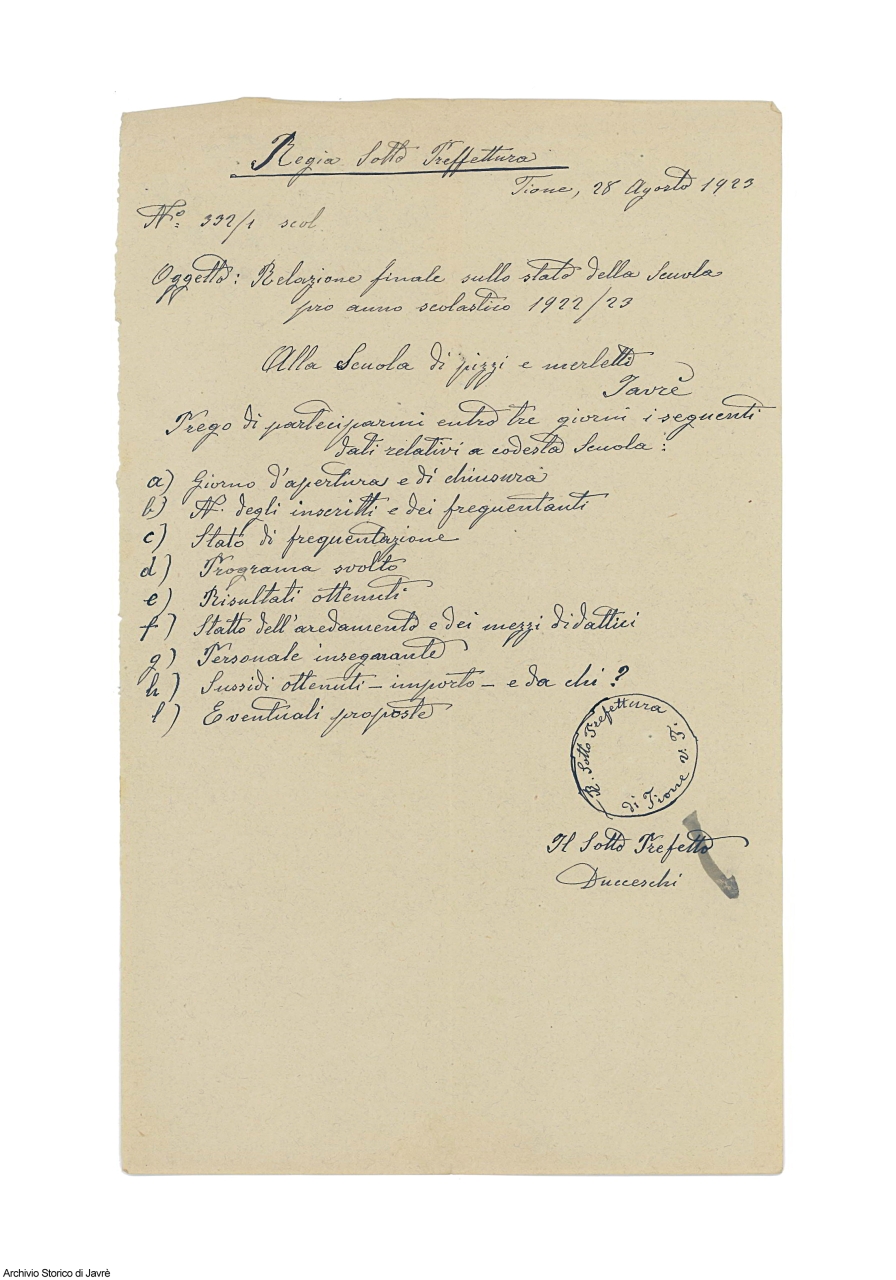 Regia Sotto Preffettura
Tione, 28 Agosto 1923
Nº 332/1 scol.
Oggetto: Relazione finale sullo stato della Scuola
pro anno scolastico 1922/23
Alla Scuola di pizzi e merletti
Javrè
Prego di parteciparmi entro tre giorni i seguenti
dati relativi a codesta Scuola:
a) Giorno d'apertura e di chiusura
b) N. degli inscritti e dei frequentanti
c) Stato di frequentazione
d) Programa svolto
e) Risultati ottenuti
f) Statto dell'aredamento e dei mezzi didattici
g) Personale insegnante
h) Sussidi ottenuti - importo - e da chi?
l) Eventuali proposte
R. Sotto Prefettura
di Tione V.T.
Il Sotto Prefetto
Ducceschi
Archivio Storico di Javrè